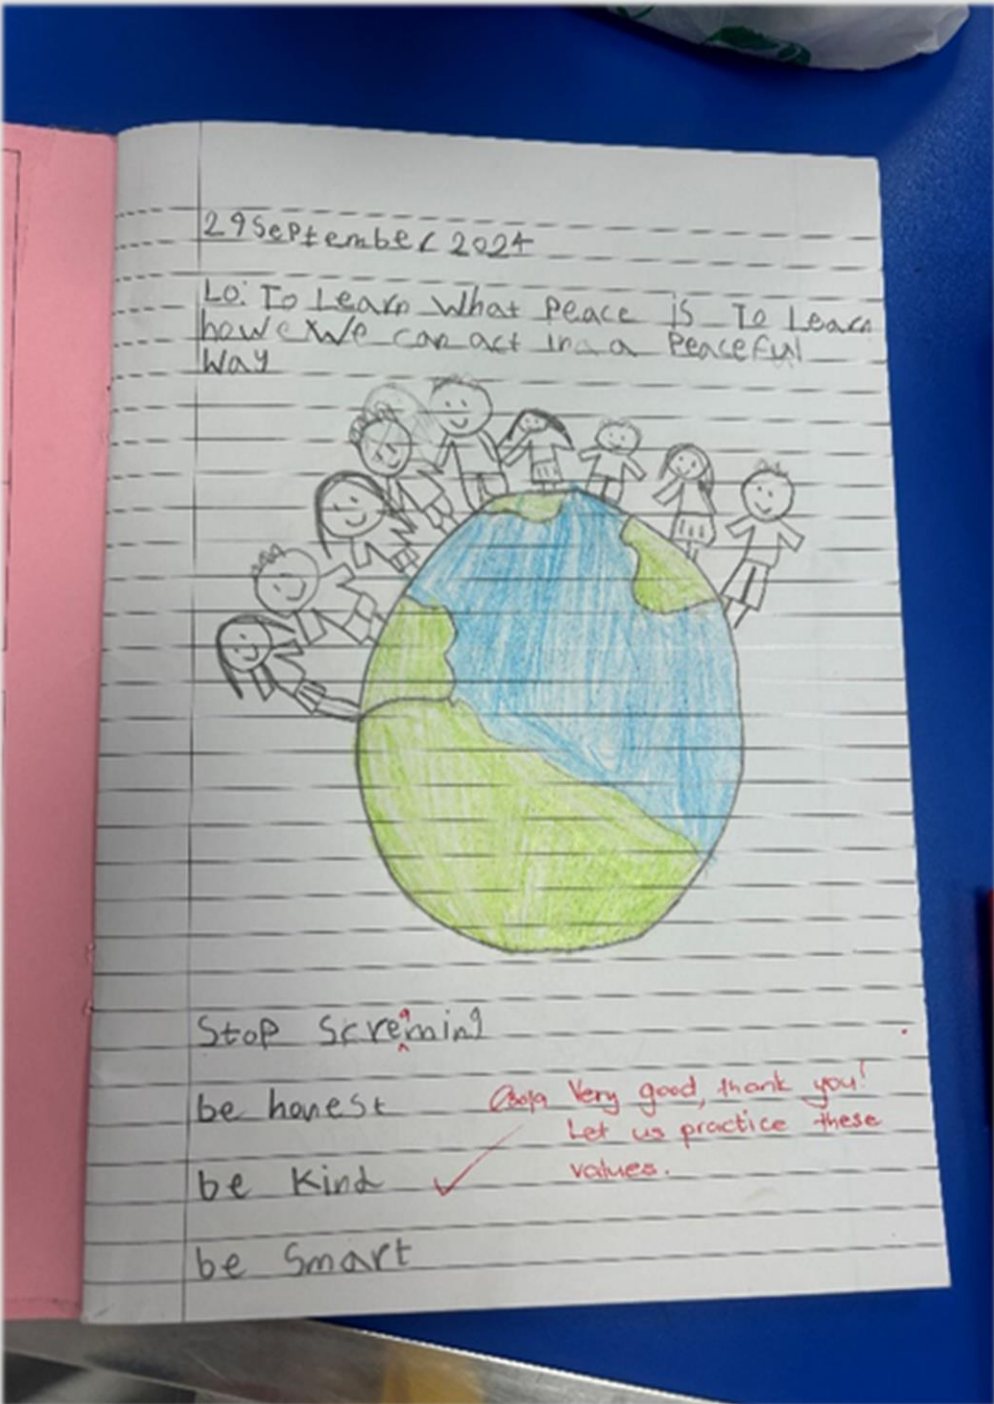 29 September 2024
Lo: To Learn What Peace is To Learn
how We can act in a Peaceful
Way
Stop Screaming
be honest
Very good, thank you!
Let us practice these
values.
be kind
be Smart